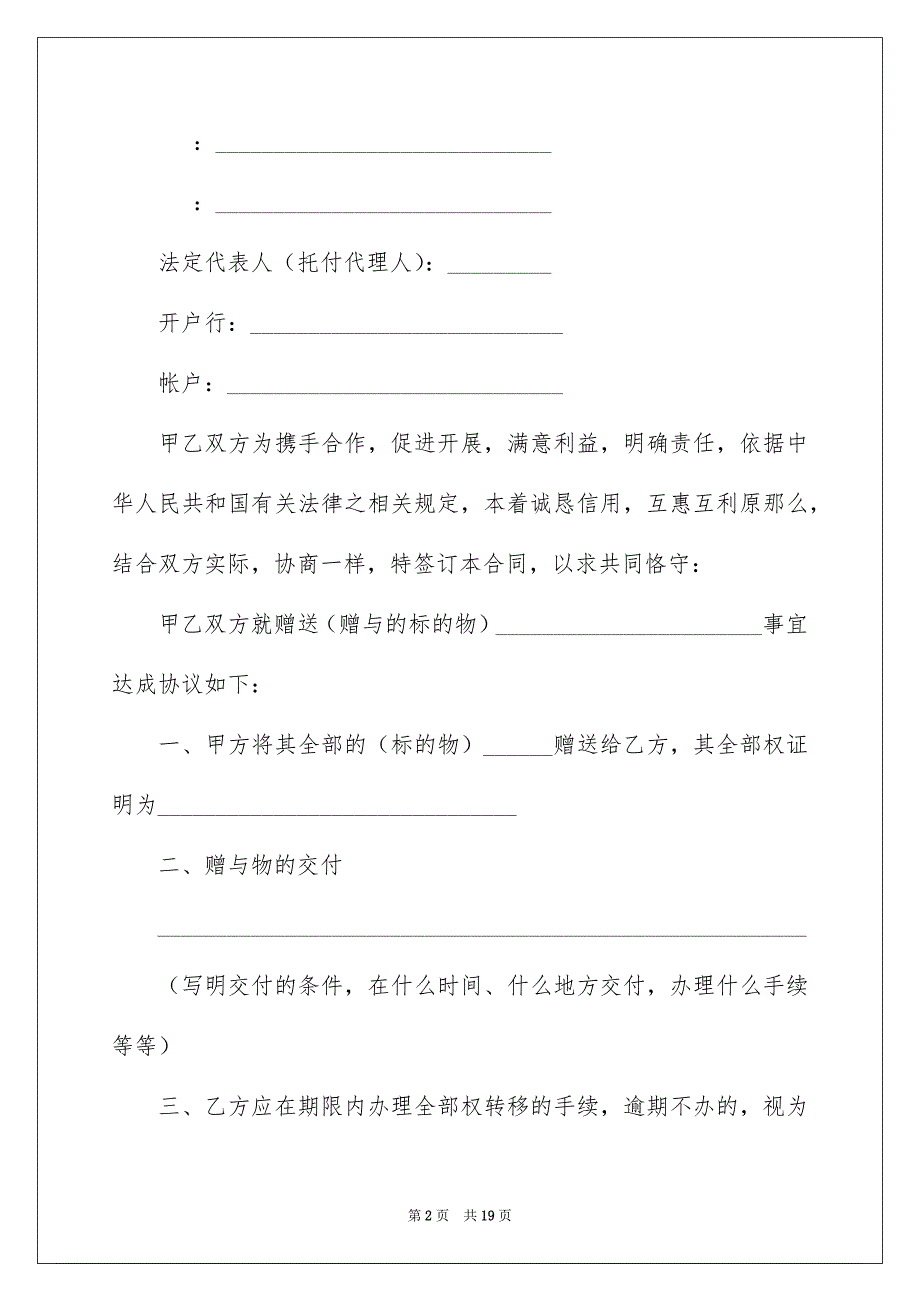 ：_____________________________
：_____________________________
法定代表人（托付代理人）：_________
开户行：___________________________
帐户：_____________________________
甲乙双方为携手合作，促进开展，满意利益，明确责任，依据中
华人民共和国有关法律之相关规定，本着诚恳信用，互惠互利原那么，
结合双方实际，协商一样，特签订本合同，以求共同恪守：
甲乙双方就赠送（赠与的标的物）_______________________事宜
达成协议如下：
一、甲方将其全部的（标的物）______赠送给乙方，其全部权证
明为_______________________________
二、赠与物的交付
________________________________________________________
（写明交付的条件，在什么时间、什么地方交付，办理什么手续
等等）
三、乙方应在期限内办理全部权转移的手续，逾期不办的，视为
第 2 页 共 19 页